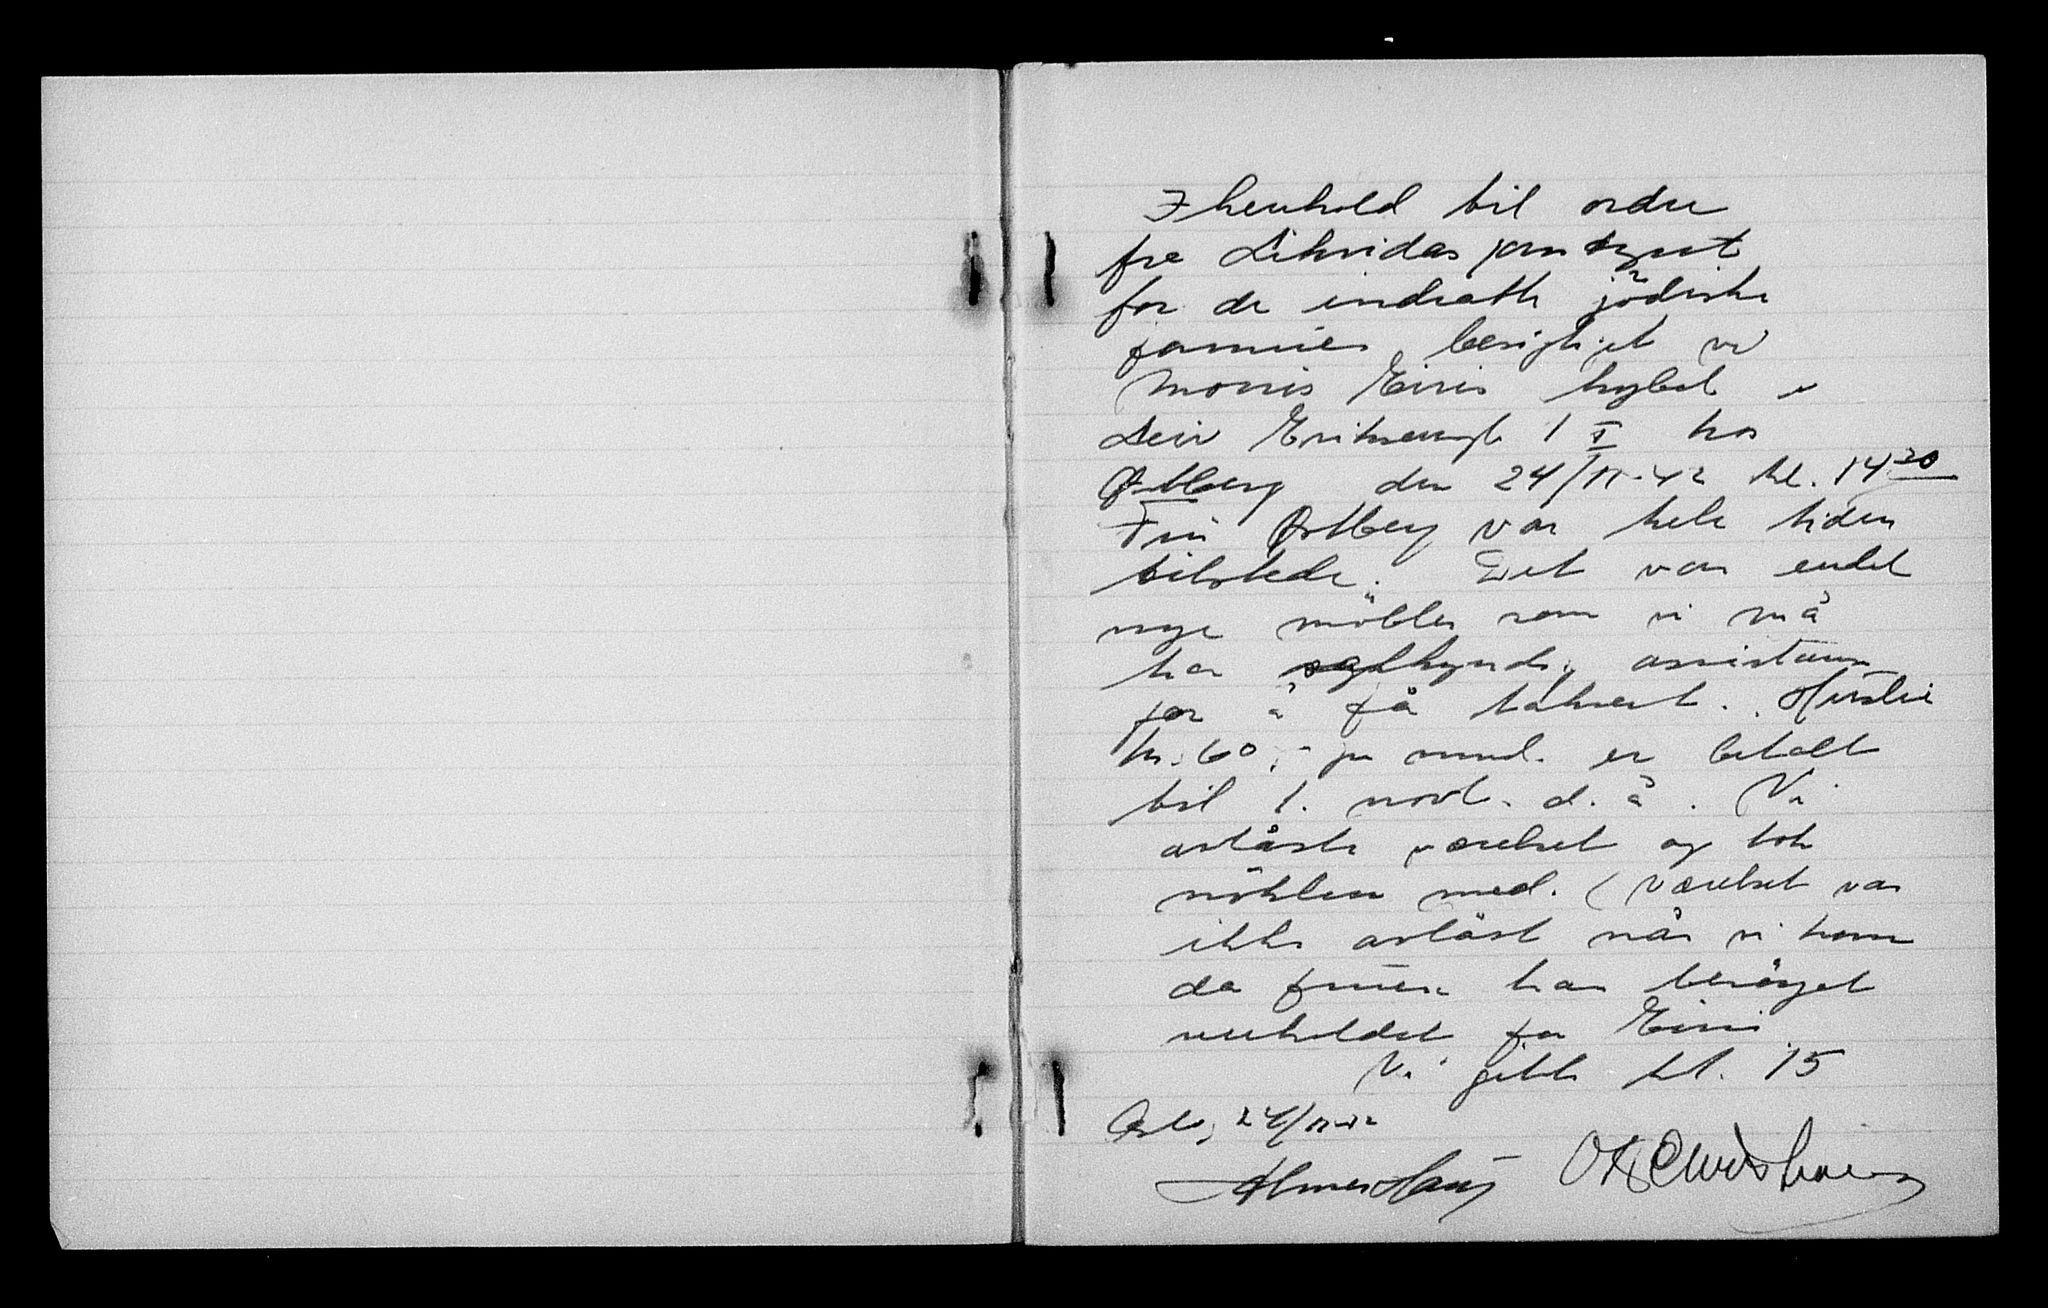 I henhold til ordre
fra Likvidasjonstyret
for de inndratte jödiske
formuer besigtiget vi
Morris Eiris hybel i
Leiv Erikssongt 1 I hos
Østberg den 24/11-42 kl. 14 30
Fru Østberg var hele tiden
tilstede. Det var endel
nye möbler som vi må
ha sagkyndig assistanse
for å få taksert. Husleie
kr. 60,- pr mnd. er betalt
til 1. novb. d. å. Vi
avlåste værelset og tok
nöklen med. (Værelset var
ikke avlåst når vi kom
da fruen har besörget
renholdet for Eiris
Vi gikk kl. 15
Oslo, 24/11-42
O K Christiansen